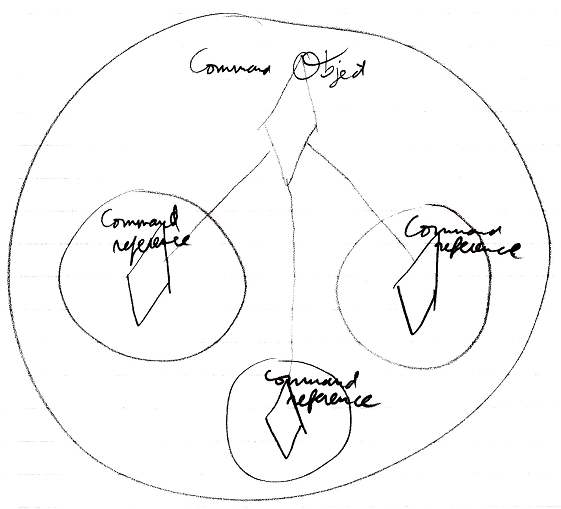 Command Object
Command
reference
Command
reference
Command
reference